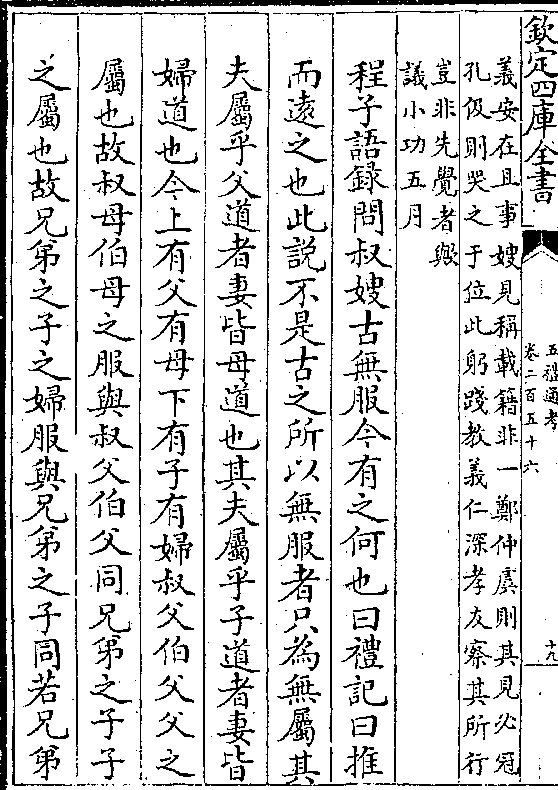 欽定四庫全書
五禮通考
卷二百五十六
十九
義安在且事嫂見稱載籍非一鄭仲虞則其見必冠
孔伋則哭之于位此躬踐教義仁深孝友察其所行
豈非先覺者歟
議小功五月
程子語錄問叔嫂古無服今有之何也曰禮記曰推
而遠之也此說不是古之所以無服者只為無屬其
夫屬乎父道者妻皆母道也其夫屬乎子道者妻皆
婦道也今上有父有母下有子有婦叔父伯父父之
屬也故叔母伯母之服與叔父伯父同兄第之子子
之屬也故兄第之子之婦服與兄第之子同若兄第